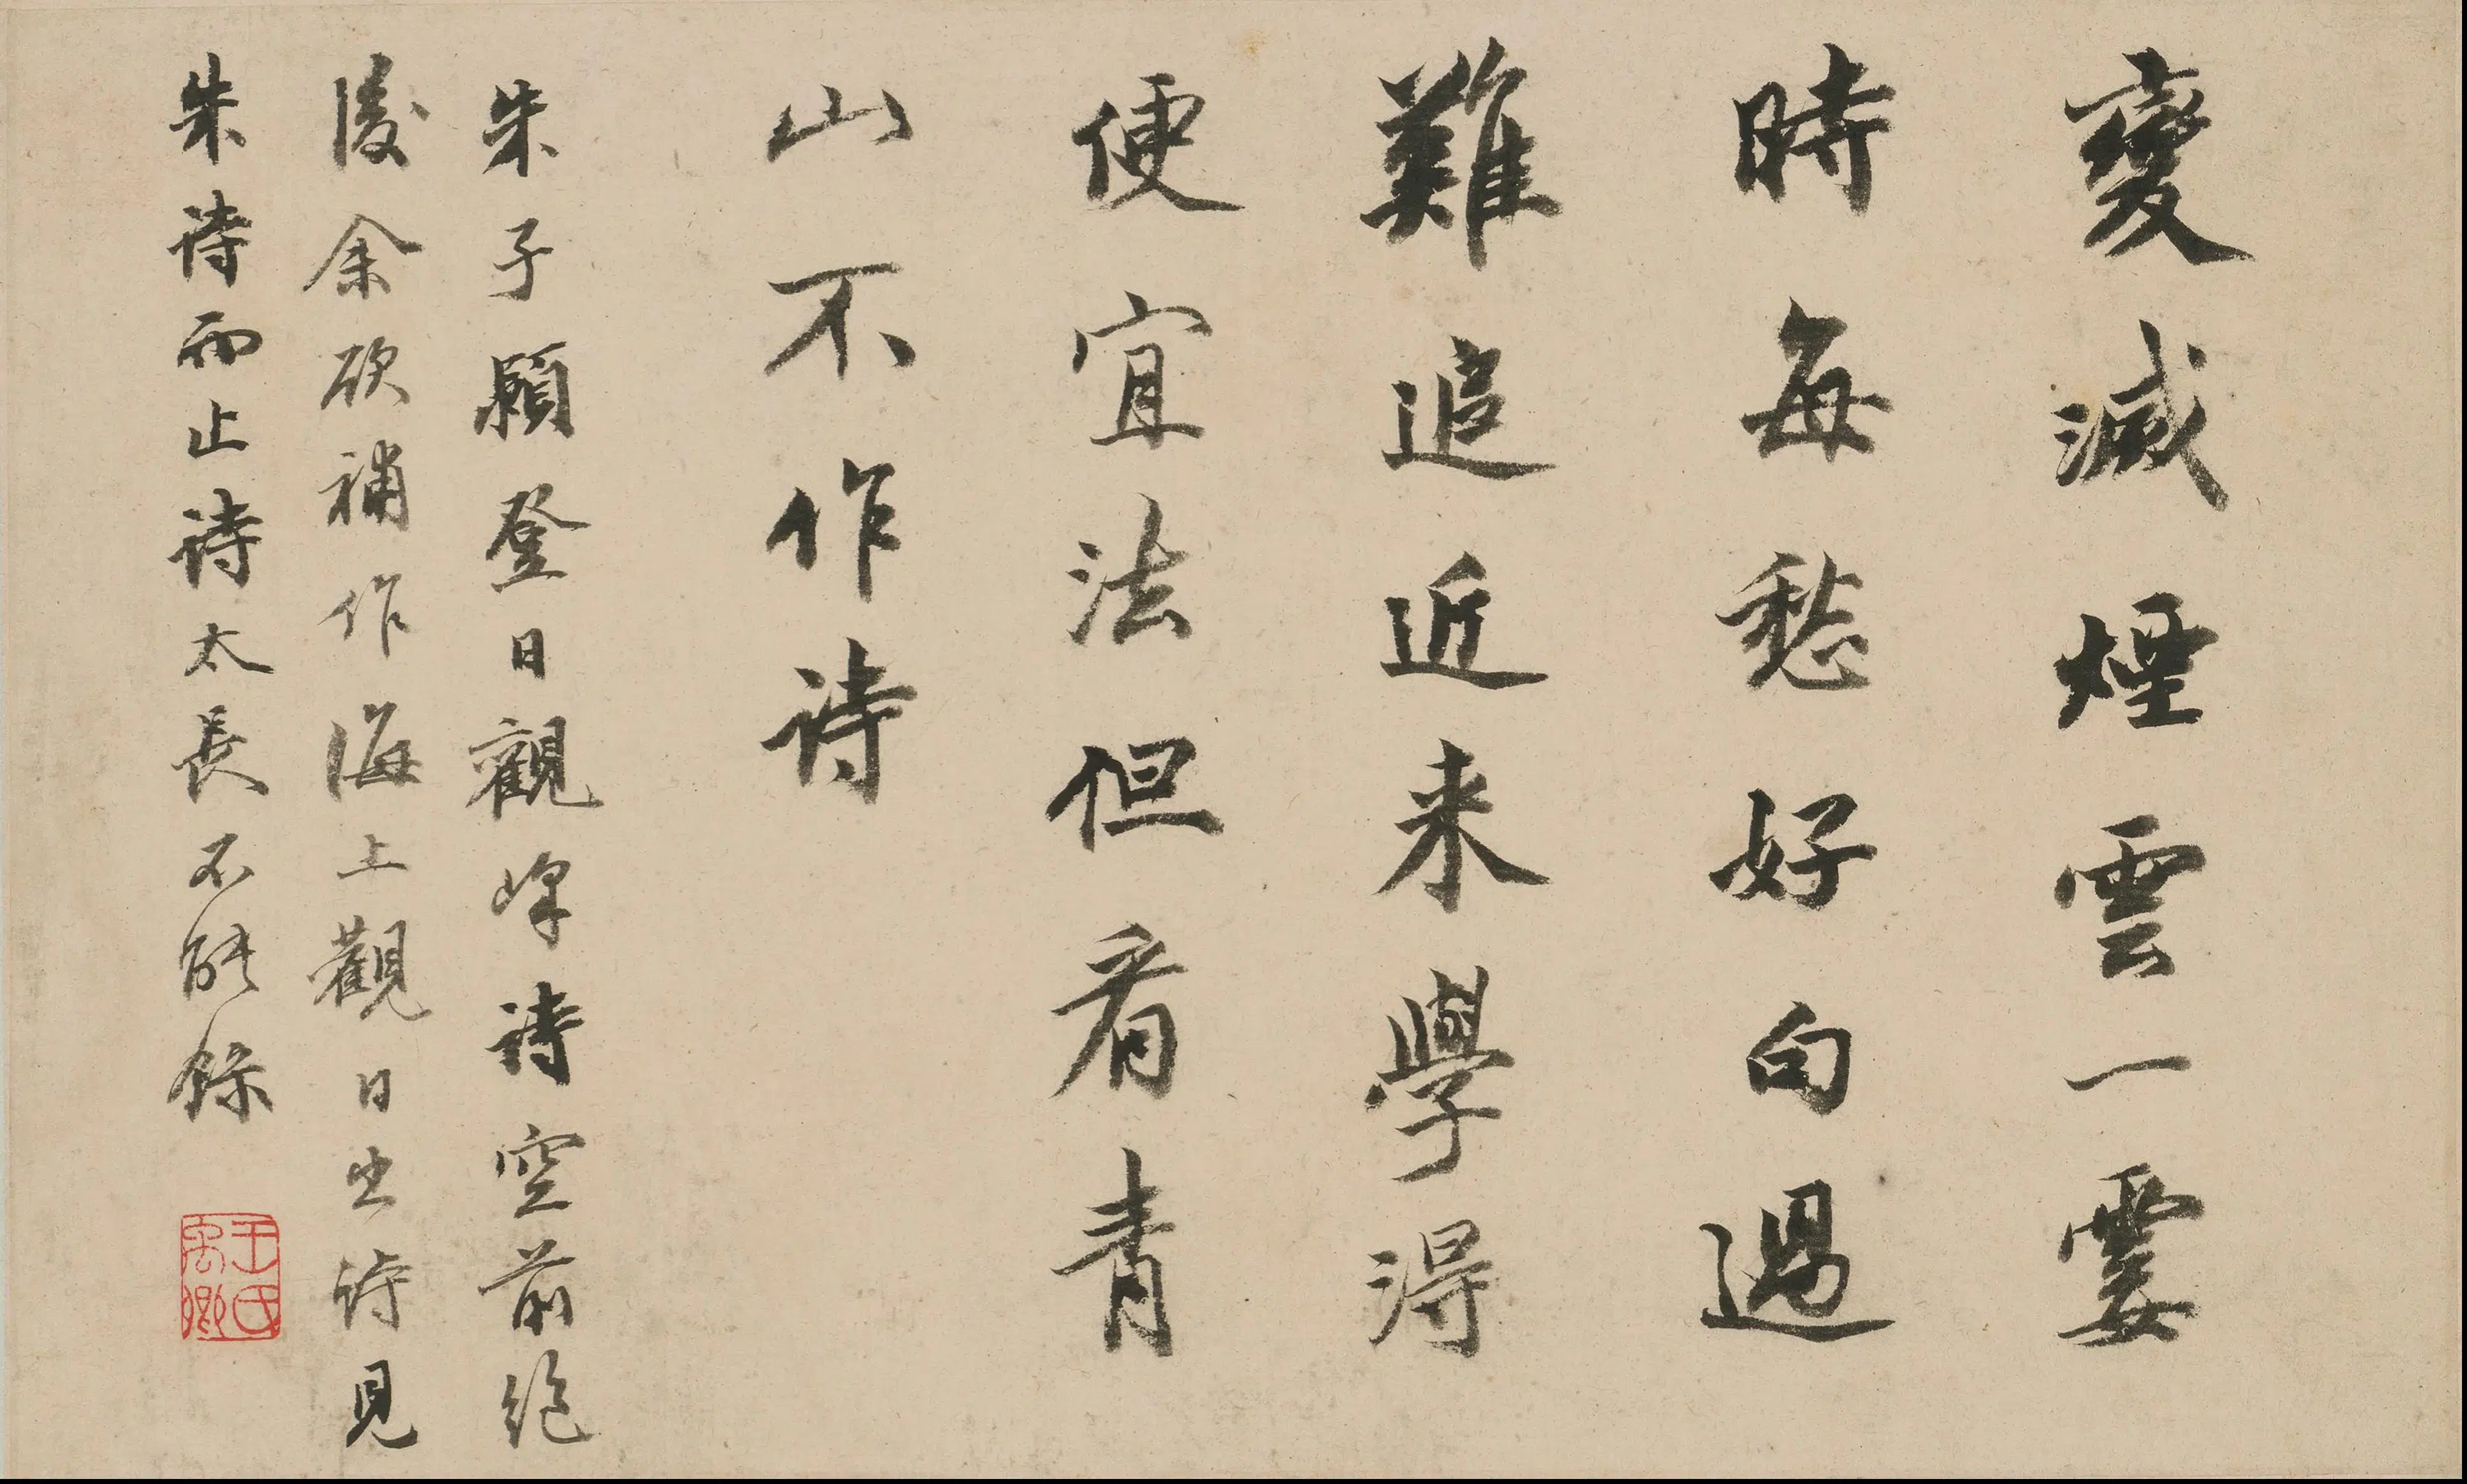 變滅煙雲一霎
時每愁好句過
難追近来學得
便宜法但看青
山不作詩
朱子頴登日觀峰詩空前絶
後余欲補作海上觀日出詩見
朱詩而止詩太長不能錄
王氏禹卿